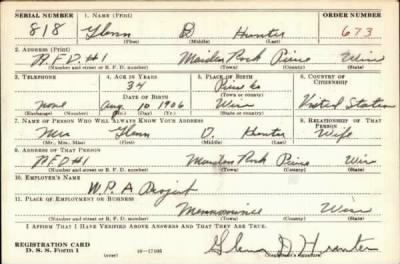 SERIAL NUMBER 1. NAME (Print) ORDER NUMBER
818 Glenn D Hunter 673
(First) (Middle) (Last)
2. ADDRESS (Print)
R.F.D. #1 Maiden Rock Pierce Wis
(Number and street or R. F. D. number) (Town) (County) (State)
3. TELEPHONE 4. AGE IN YEARS 5. PLACE OF BIRTH 6. COUNTRY OF CITIZENSHIP
34 Pierce Co
DATE OF BIRTH (Town or county)
None Aug 10 1906 Wis United States
(Exchange) (Number) (Mo.) (Day) (Yr.) (State or country)
7. NAME OF PERSON WHO WILL ALWAYS KNOW YOUR ADDRESS 8. RELATIONSHIP OF THAT PERSON
Mrs Glenn D. Hunter Wife
(Mr., Mrs., Miss) (First) (Middle) (Last)
9. ADDRESS OF THAT PERSON
R.F.D #1 Maiden Rock Pierce Wis
(Number and street or R. F. D. number) (Town) (County) (State)
10. EMPLOYER'S NAME
W.P.A Project
11. PLACE OF EMPLOYMENT OR BUSINESS
Menomonie Wis
(Number and street or R. F. D. number) (Town) (County) (State)
I AFFIRM THAT I HAVE VERIFIED ABOVE ANSWERS AND THAT THEY ARE TRUE.
REGISTRATION CARD
D. S. S. Form 1 (over) 16—17105 Glenn D Hunter
(Registrant's signature)